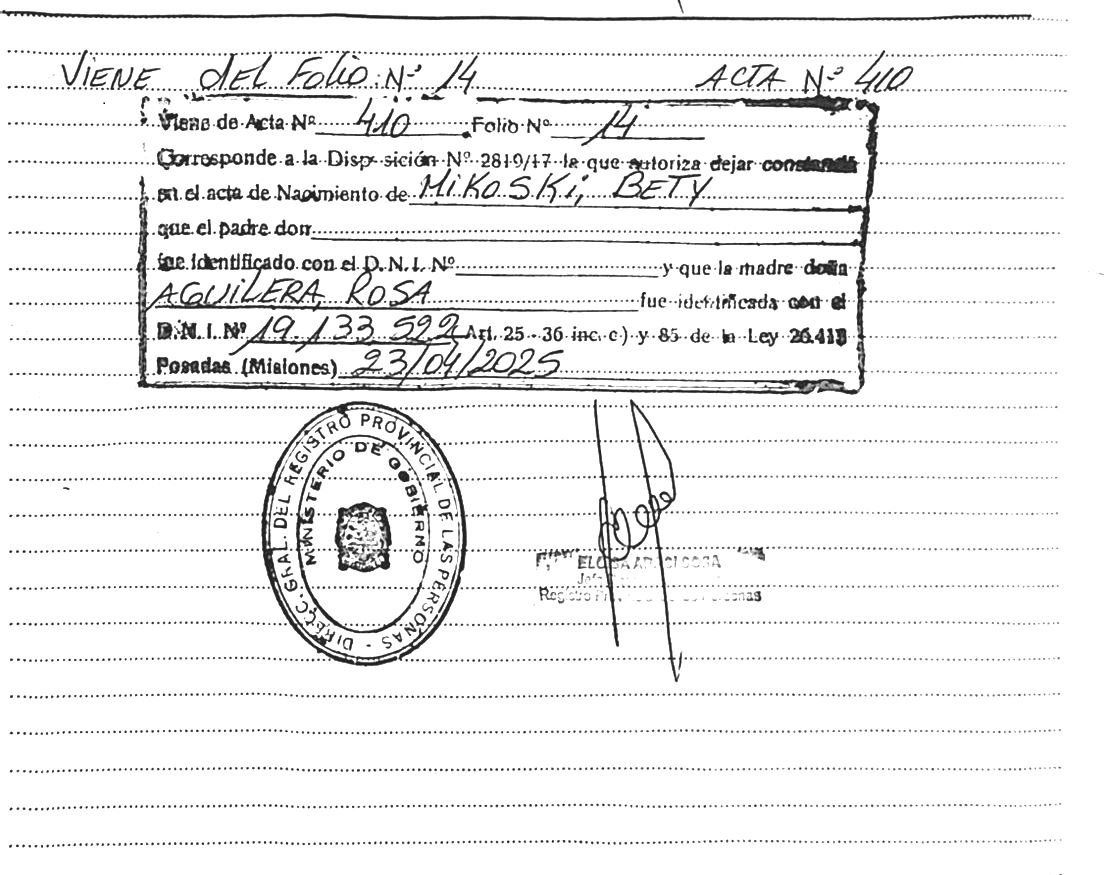 VIENE del Folio: Nº 14 ACTA Nº 410
Viene de Acta Nº 410 Folio Nº 14
Corresponde a la Disposición Nº 2819/17 la que autoriza dejar constancia
en el acta de Nacimiento de MiKoSKi, BETY
que el padre don
fue identificado con el D.N.I. Nº y que la madre doña
AGUiLERA, ROSA fue identificada con el
D.N.I. Nº 19.133.592 Art. 25 - 36 inc. c) y 85 de la Ley 26.413
Posadas (Misiones) 23/04/2025
DIRECC. GRAL. DEL REGISTRO PROVINCIAL DE LAS PERSONAS -
MINISTERIO DE GOBIERNO